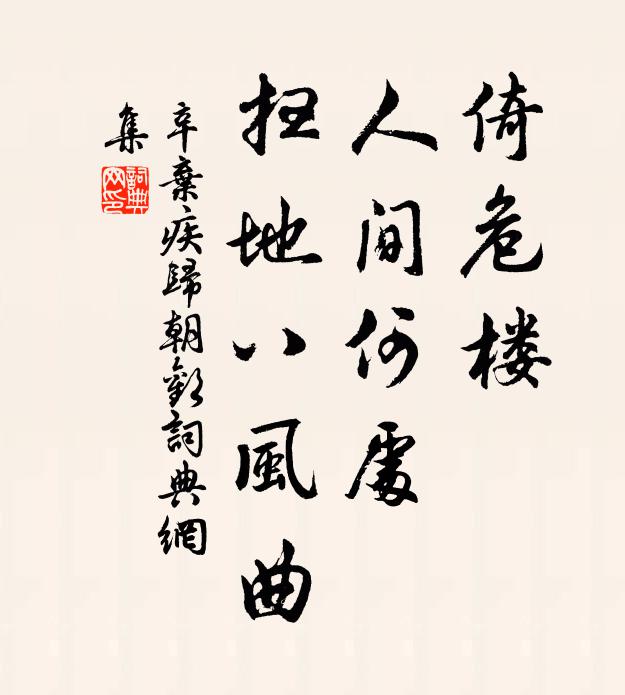 倚危楼
人间何處
扫地八風曲
辛棄疾歸朝歡詞典網
集
詞典网印